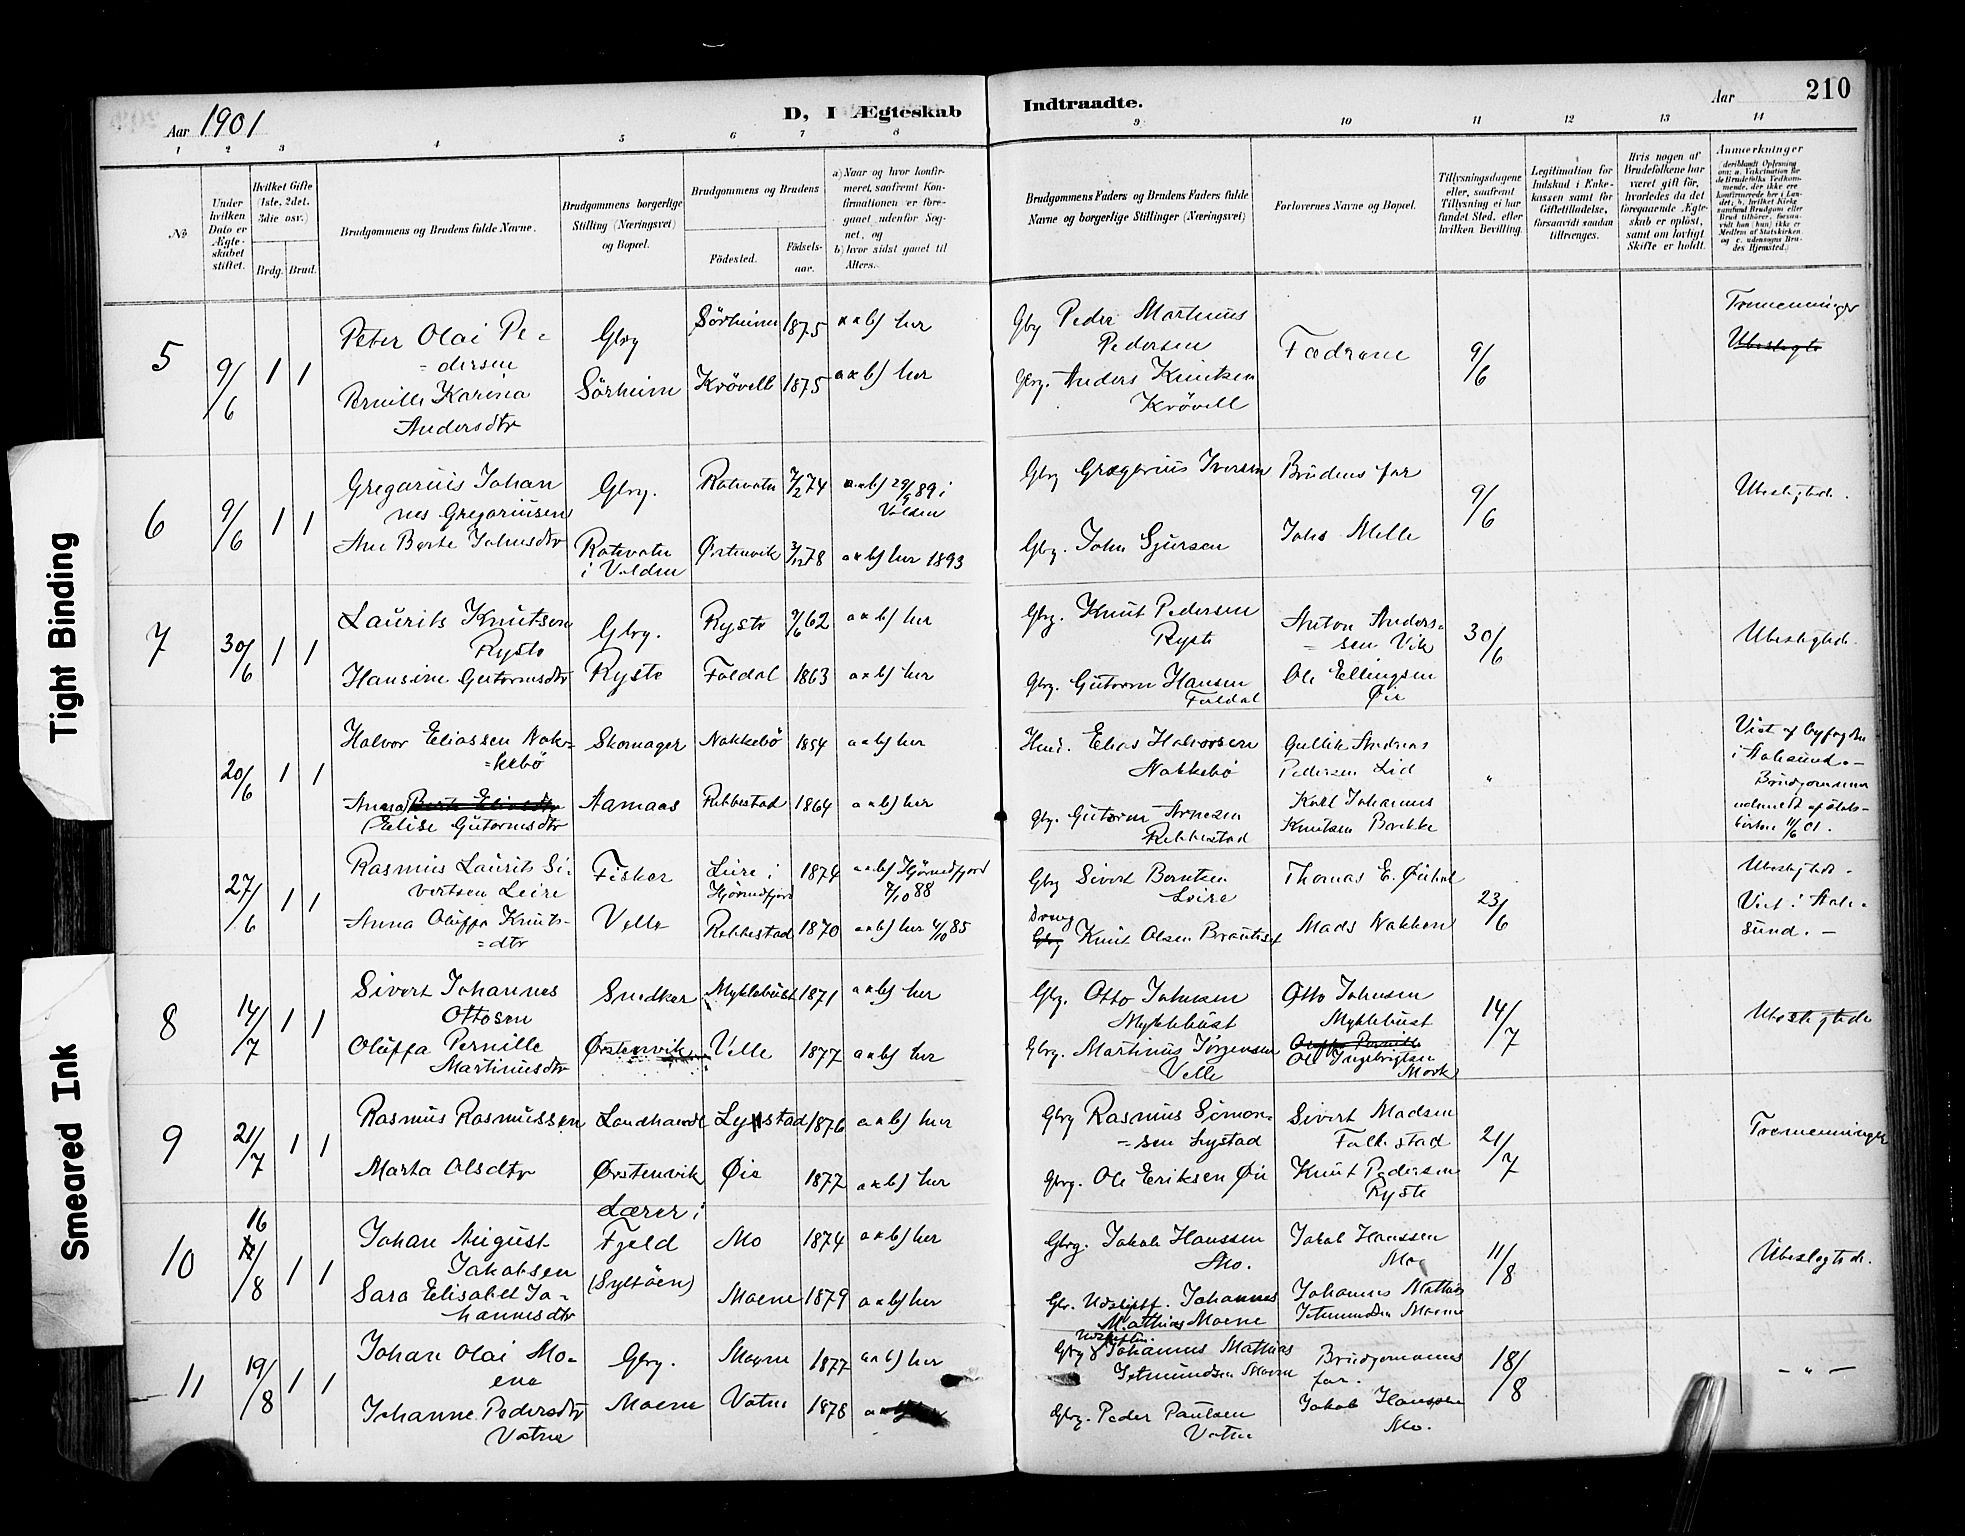 Aar 1901
D, I Ægteskab
Indtraadte.
Aar
210
1 2 3 4 5 6 7 8 9 10 11 12 13 14
No
Under hvilken Dato er Ægteskabet stiftet.
Hvilket Gifte (1ste, 2det, 3die osv.)
Brdg. Brud.
Brudgommens og Brudens fulde Navne.
Brudgommens borgerlige Stilling (Næringsvei) og Bopæl.
Brudgommens og Brudens
Fødested.
Fødselsaar.
a) Naar og hvor konfirmeret, saafremt Konfirmationen er foregaaet udenfor Sognet, og
b) hvor sidst gaaet til Alters.
Brudgommens Faders og Brudens Faders fulde Navne og borgerlige Stillinger (Næringsvei)
Forlovernes Navne og Bopæl.
Tillysningsdagene eller, saafremt Tillysning ei har fundet Sted, efter hvilken Bevilling.
Legitimation for Indskud i Enkekassen samt for Giftetilladelse, forsaavidt saadan tiltrænges.
Hvis nogen af Brudefolkene har været gift før, hvorledes da det foregaaende Ægteskab er opløst, samt om lovligt Skifte er holdt.
Anmærkninger
5
9/6
1 1
Peter Olai Pe-
=dersen
Pernille Karina
Andersdtr
Gbrg
Sörheim
Sörheim 1875 a x b) her
Krövell 1875 a x b) her
Gbrg Peder Martinus
Pedersen
Gbrg. Anders Knutsen
Krövell
Fædrene
9/6
Tremenninger
Ubeslegte
6
9/6
1 1
Gregarius Johan
nes Gregariussen
Ane Berte Johnsdtr
Gbrg.
Rotevatn
i Volden
Rotevatn 7/2 74 a x b) 29/9 89 i
Volden
Ørstenvik 3/12 78 a x b) her 1893
Gbrg Gregerius Iversen
Gbrg. John Sjursen
Brudens far
Johs Melle
9/6
Ubeslegtede.
7
30/6
1 1
Laurits Knutsen
Ryste
Hansine Gutormsdtr
Gbrg.
Ryste
Ryste 9/6 62 a x b) her
Foldal 1863 a x b) her
Gbrg. Knut Pedersen
Ryste
Gbrg. Gutorm Hansen
Foldal
Anton Anders-
=sen Vik
Ole Ellingsen
Øie
30/6
Ubeslegtede.
20/6
1 1
Halvor Eliassen Nok-
=kebö
Anna Berte Eliasdtr
Elise Gutormsdtr
Skomager
Aamaas
Nakkebö 1854 a x b) her
Rebbestad 1864 a x b) her
Elias Halvorsen
Nakkebö
Gbrg. Gutorm Arnesen
Rebbestad
Gullik Andreas
Pedersen Lid
Karl Johannes
Knutsen Brekke
"
Viet af byfogden
i Aalesund. -
Brudgommen
udmeldt af Stats-
kirken 11/6 01.
27/6
1 1
Rasmus Laurits Si-
vertsen Leire
Anna Oluffa Knuts-
=dtr
Fisker
Velle
Leire i
Hjörundfjord 1874 a x b) Hjörundfjord
7/10 88
Rebbestad 1870 a x b) her 4/10 85
Gbrg Sivert Berntsen
Leire
Dreng
Gbrg Knut Olsen
Thomas E.
Mads Nakken
23/6
Ubeslegtede.
Viet i Aale-
sund. -
8
14/7
1 1
Sivert Johannes
Ottosen
Oluffa Pernille
Martinusdtr
Snedker
Ørstenvik
Myklebust 1871 a x b) her
Velle 1877 a x b) her
Gbrg. Otto Johnsen
Myklebust
Gbrg. Martinus Jørgensen
Velle
Otto Johnsen
Myklebust
Oluffa Pernille
Ole Ingebrigtsen
Mork
14/7
Ubeslegtede
9
21/7
1 1
Rasmus Rasmussen
Marta Olsdtr
Landhandl
Ørstenvik
Lystad 1876 a x b) her
Øie 1877 a x b) her
Gbrg Rasmus Simon-
=sen Lystad
Gbrg. Ole Eriksen Øie
Sivert Madsen
Folkestad
Knut Pedersen
Ryste
21/7
Tremenninger
10
16/8
1 1
Johan August
Jakobsen
Sara Elisabet Jo-
hannesdtr
Lærer i
Fjeld
(Syltöen)
Mo 1874 a x b) her
Moene 1879 a x b) her
Gbrg. Jakob Hanssen
Mo.
Gbr. Udskiftf. Johannes
Mathias Moene
Jakob Hanssen
Mo
Johannes Mathias
Jetmundsen Moene
11/8
Ubeslegtede.
11
19/8
1 1
Johan Olai Mo-
ene
Johanne Pedersdtr
Vatne
Gbrg.
Moene
Moene 1877 a x b) her
Vatne 1878
Gbrg Johannes Mathias
Jetmundsen Moene
Gbrg. Peder Paulsen
Vatne
Brudgommens
far.
Jakob Hanssen
Mo.
18/8
- " -
Tight Binding
Smeared Ink